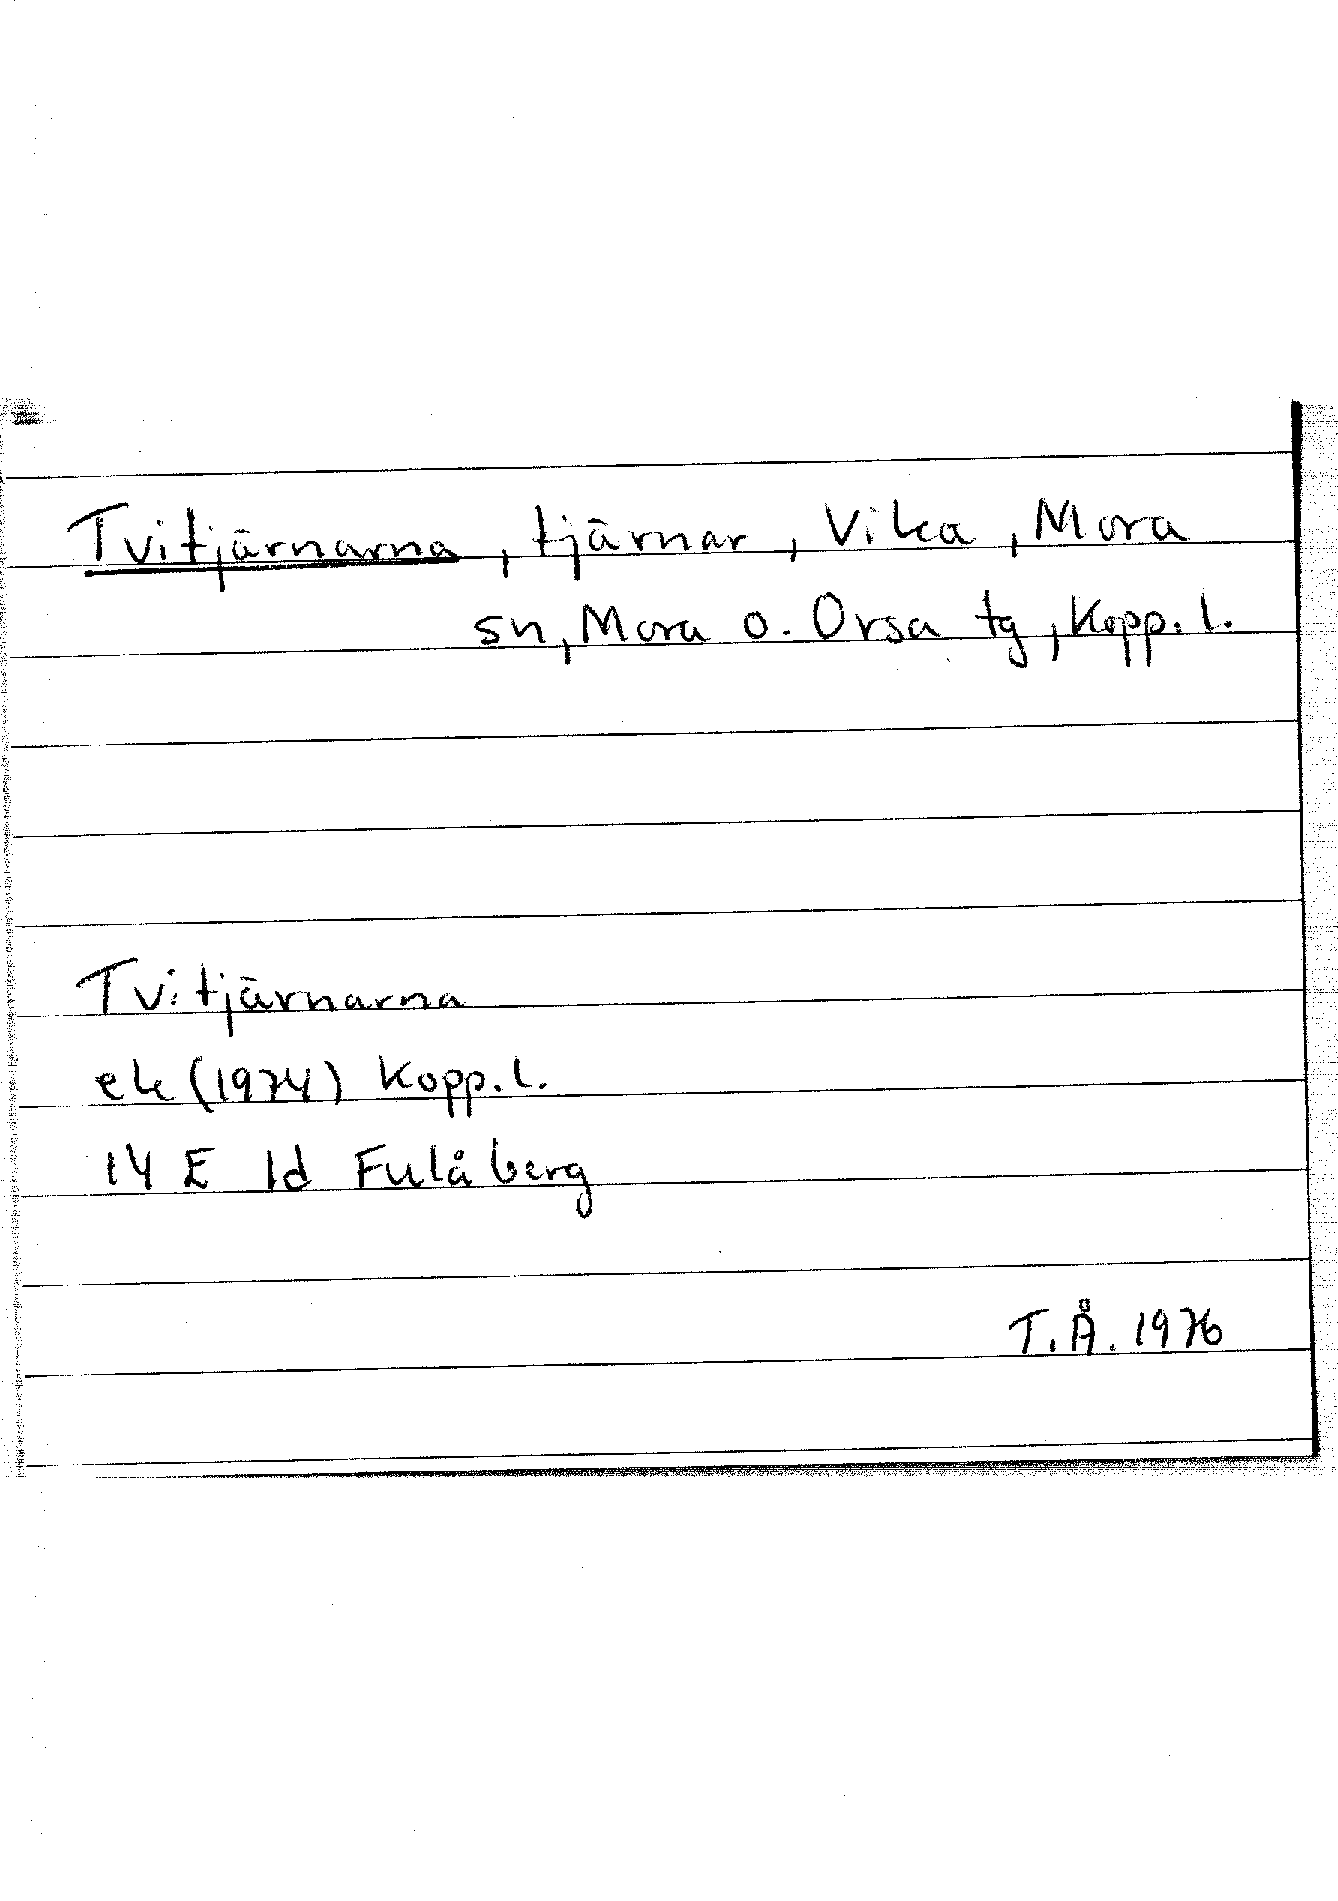 Tvitjärnarna, tjärnar, Vika, Mora
sn, Mora o. Orsa tg, Kopp. l.
Tvitjärnarna
ek (1974) Kopp. l.
14 E 1d Fulåberg
T.Å. 1976